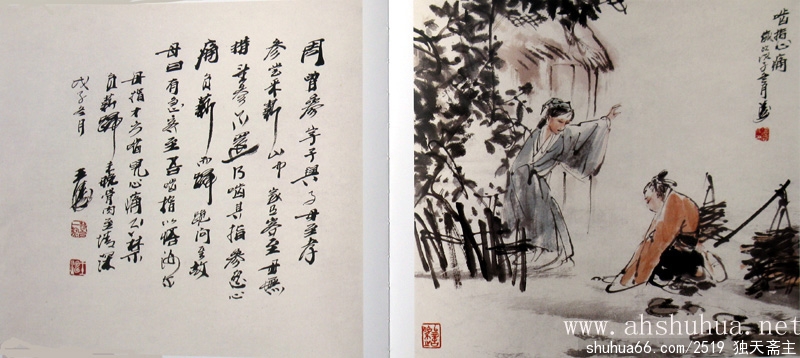 周曾參字子輿事母至孝
參嘗采薪山中家有客至母無
措望參不還乃嚙其指參忽心
痛負薪而歸跪問其故
母曰有急客至吾嚙指以悟汝尔
母指才方嚙兒心痛不禁
負薪歸未晚骨肉至情深
戊子五月
嚙指心痛
歲次戊子五月
www.ahshuhua.net
shuhua66.com/2519 独天斋主